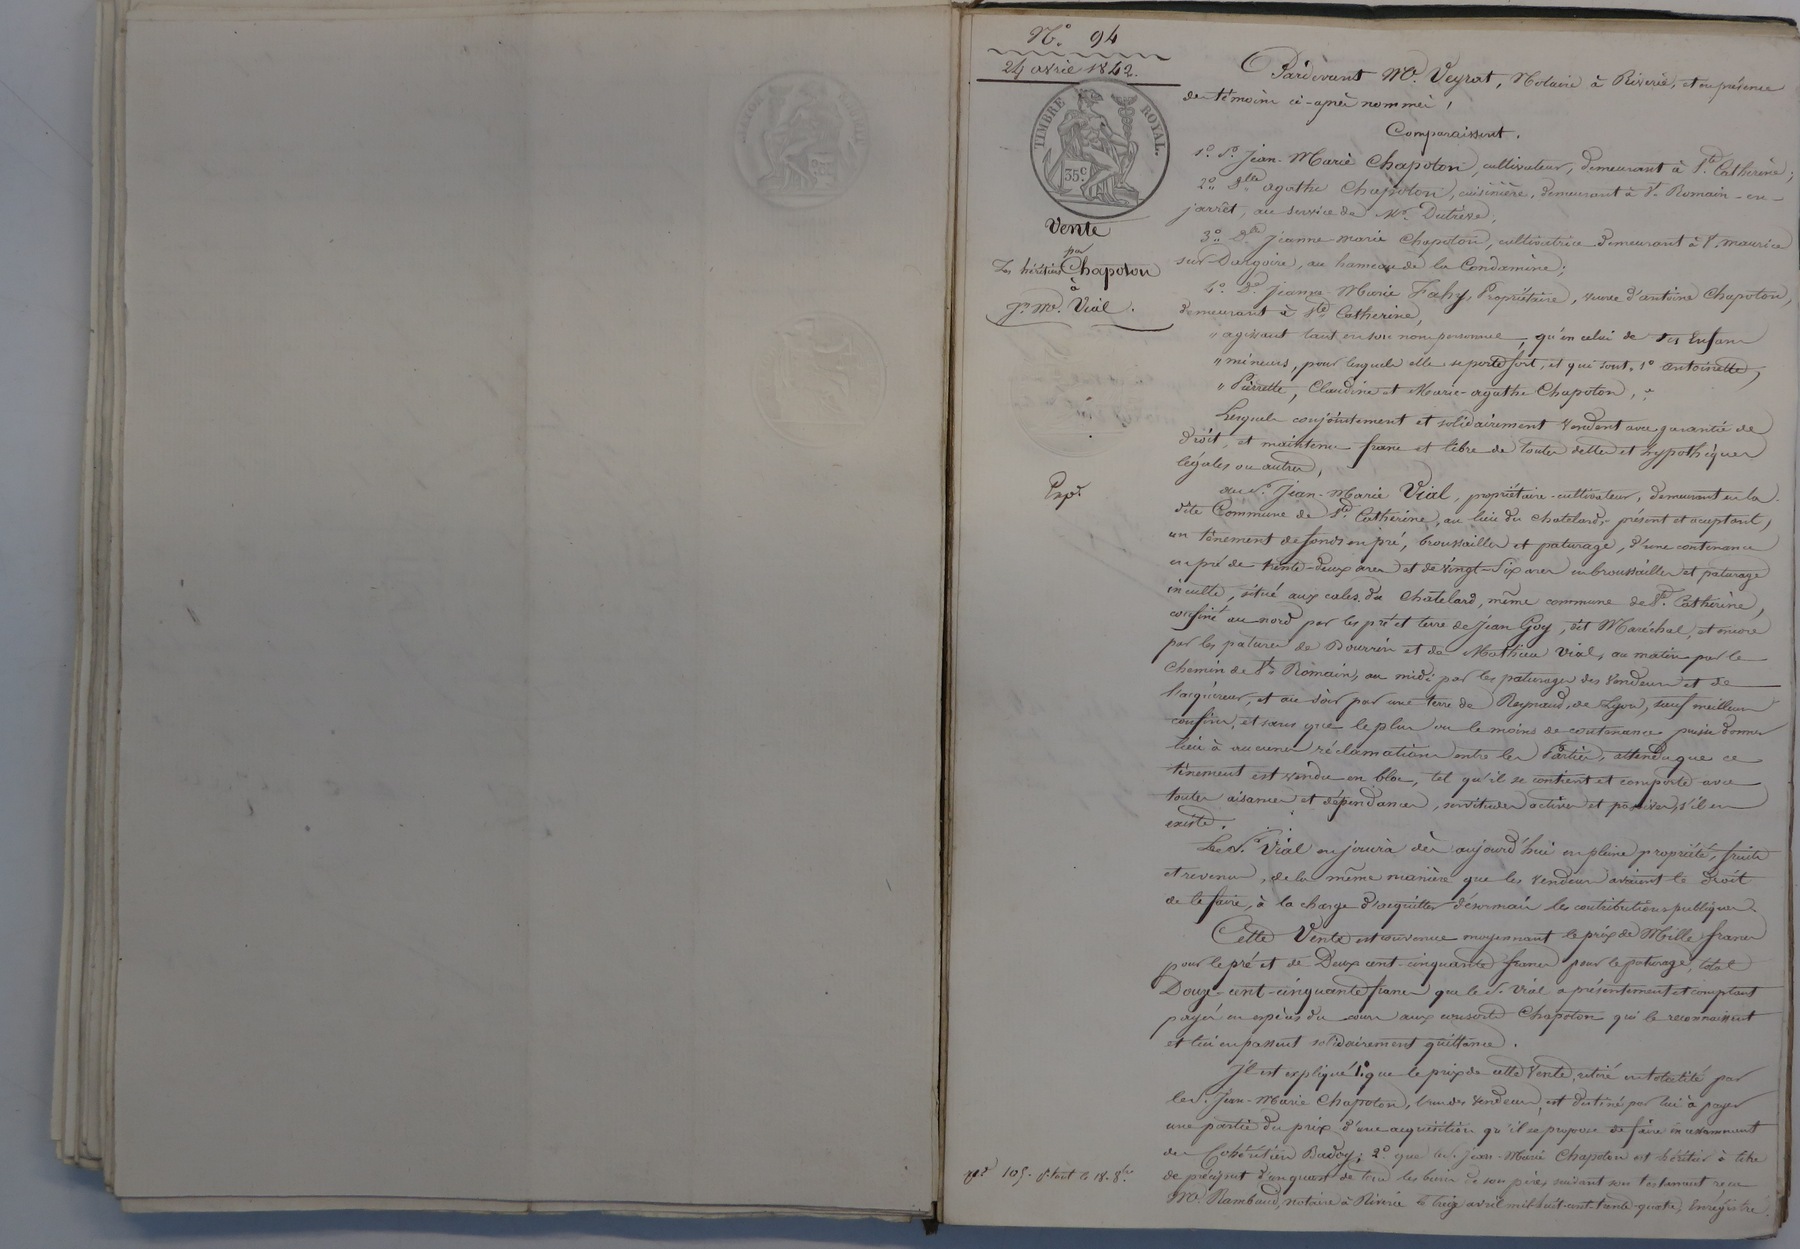 N.° 94
24 avril 1842.
TIMBRE ROYAL.
35 c.
Vente
par
Les héritiers Chapoton
à
Jn. Mie. Vial.
Expd.
Pardevant Me. Veyrat, Notaire à Riverie, et en présence
des témoins ci-après nommés,
Comparaissent.
1.° Sr. Jean-Marie Chapoton, cultivateur, demeurant à Ste. Catherine;
2.° Dlle. agathe Chapoton, cuisinière, demeurant à St. Romain-en-
jarrêt, au service de Mr. Dutrève,
3.° Dlle. jeanne-marie Chapoton, cultivatrice demeurant à St. maurice
sur Dargoire, au hameau de la Condamine;
4.° De. Jeanne-Marie Fahy, Propriétaire, veuve d'antoine Chapoton,
demeurant à Ste. Catherine,
" agissant tant en son nom personnel, qu'en celui de ses Enfans
" mineurs, pour lesquels elle se porte fort, et qui sont, 1° antoinette,
" Pierrette, Claudine et Marie-agathe Chapoton,
Lesquels conjointement et solidairement vendent avec garantie de
droit, et maintenue franc et libre de toutes dettes et hypothèques
légales ou autres,
au Sr. Jean-Marie Vial, propriétaire-cultivateur, demeurant en la
dite Commune de Ste. Catherine, au lieu du chatelard, présent et acceptant,
un ténement de fonds en pré, broussailles et paturage, d'une contenance
en pré de trente-deux ares et de vingt-six ares en broussailles et paturage
inculte, situé aux cales du Châtelard, même commune de Ste. Catherine,
confiné au nord par les pré et terre de Jean Goy, dit Maréchal, et encore
par les patures de Bourrin et de Mathieu Vial, au matin par le
chemin de St. Romain, au midi par les paturages des vendeurs et de
l'acquéreur, et au soir par une terre de Reynaud, de Lyon, sauf meilleurs
confins, et sans que le plus ou le moins de contenance puisse donner
lieu à aucunes réclamations entre les Parties, attendu que ce
ténement est vendu en bloc, tel qu'il se contient et comporte avec
toutes aisances et dépendances, servitudes actives et passives, s'il en
existe.
Le Sr. Vial en jouira dès aujourd'hui en pleine propriété, fruits
et revenus, de la même manière que les vendeurs avaient le droit
de le faire, à la charge d'acquitter désormais les contributions publiques.
Cette Vente est convenue moyennant le prix de Mille francs
pour le pré et de Deux cent-cinquante francs pour le paturage, total
Douze-cent-cinquante francs que le Sr. Vial a présentement et comptant
payés en espèces du cours aux consorts Chapoton qui le reconnaissent
et lui en passent solidairement quittance.
Il est expliqué 1.° que le prix de cette Vente, retiré en totalité par
le Sr. Jean-Marie Chapoton, l'un des vendeurs, est destiné par lui à payer
une partie du prix d'une acquisition qu'il se propose de faire incessamment
des Cohéritiers Badoy; 2.° que le Sr. Jean-Marie Chapoton est héritier à titre
de préciput d'un quart de tous les biens de son père, suivant son testament reçu
Me. Rambaud, notaire à Riverie le treize avril mil huit-cent-trente-quatre, Enregistré